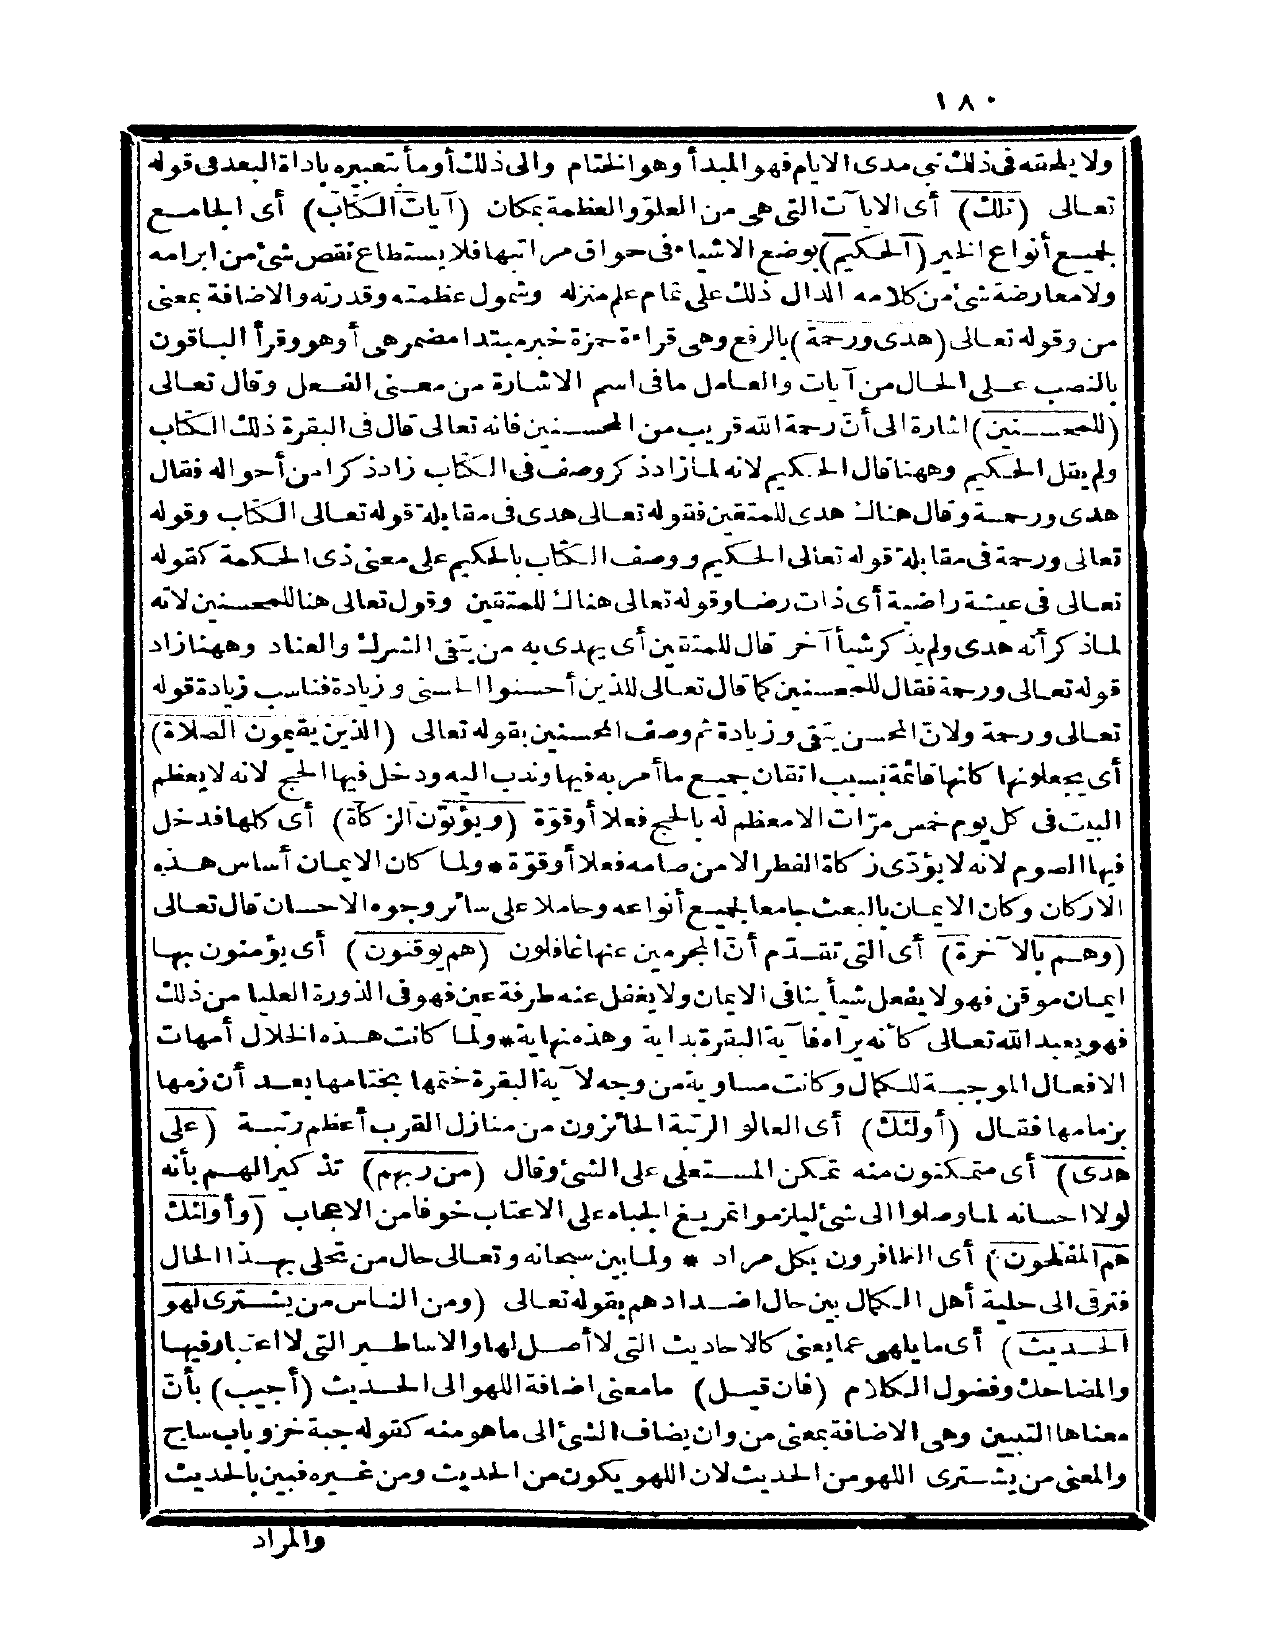 ١٨٠
ولا يلحقه في ذلك شيء مدى الايام فهو المبدأ وهو الختام والى ذلك أومأ بتعبيره باداة البعد في قوله
تعالى (تلك) أى الآيات التي هي من العلو والعظمة بمكان (آيات الكتاب) أى الجامع
لجميع أنواع الخير (الحكيم) بوضع الاشياء في حواق مراتبها فلا يستطاع نقض شئ من ابرامه
ولا معارضة شئ من كلامه الدال ذلك على تمام علم منزله وشمول عظمته وقدرته والاضافة بمعنى
من وقوله تعالى (هدى ورحمة) بالرفع وهى قراءة حمزة خبر مبتدا مضمر هى أو هو وقرأ الباقون
بالنصب على الحال من آيات والعامل ما فى اسم الاشارة من معنى الفعل وقال تعالى
(للمحسنين) اشارة الى أنّ رحمة الله قريب من المحسنين فانه تعالى قال فى البقرة ذلك الكتاب
ولم يقل الحكيم وههنا قال الحكيم لانه لما زاد ذكر وصف فى الكتاب زاد ذكرا من أحواله فقال
هدى ورحمة وقال هناك هدى للمتقين فقوله تعالى هدى فى مقابلة قوله تعالى الكتاب وقوله
تعالى ورحمة فى مقابلة قوله تعالى الحكيم ووصف الكتاب بالحكيم على معنى ذى الحكمة كقوله
تعالى فى عيشة راضية أى ذات رضا وقوله تعالى هناك للمتقين وقول تعالى هنا للمحسنين لانه
لما ذكر أنه هدى ولم يذكر شيأ آخر قال للمتقين أى يهدى به من يتقى الشرك والعناد وههنا زاد
قوله تعالى ورحمة فقال للمحسنين كما قال تعالى للذين أحسنوا الحسنى وزيادة فناسب زيادة قوله
تعالى ورحمة ولانّ المحسن يتقى وزيادة ثم وصف المحسنين بقوله تعالى (الذين يقيمون الصلاة)
أى يجعلونها كانها قائمة بسبب اتقان جميع ما أمر به فيها وندب اليه ودخل فيها الحج لانه لا يعظم
البيت فى كل يوم خمس مرّات الا معظم له بالحج فعلا أو قوّة (ويؤتون الزكاة) أى كلها فدخل
فيها الصوم لانه لا يؤدّى زكاة الفطر الا من صامه فعلا أو قوّة * ولما كان الايمان أساس هذه
الاركان وكان الايمان بالبعث جامعا لجميع أنواعه وحاملا على سائر وجوه الاحسان قال تعالى
(وهم بالآخرة) أى التى تقدّم أنّ المجرمين عنها غافلون (هم يوقنون) أى يؤمنون بها
ايمان موقن فهو لا يفعل شيأ ينافى الايمان ولا يغفل عنه طرفة عين فهو فى الذورة العليا من ذلك
فهو يعبد الله تعالى كأنه يراه فآية البقرة بداية وهذه نهاية * ولما كانت هذه الخلال أمهات
الافعال الموجبة للكمال وكانت مساوية من وجه لآية البقرة ختمها بختامها بعد أن زمها
بزمامها فقال (أولئك) أى العالو الرتبة الحائزون من منازل القرب أعظم رتبة (على
هدى) أى متمكنون منه تمكن المستعلى على الشئ وقال (من ربهم) تذكيرا لهم بأنه
لولا احسانه لما وصلوا الى شئ ليلزموا تمريغ الجباه على الاعتاب خوفا من الاعجاب (وأولئك
هم المفلحون) أى الظافرون بكل مراد * ولما بين سبحانه وتعالى حال من تحلى بهذا الحال
فترقى الى حلية أهل الكمال بين حال اضدادهم بقوله تعالى (ومن الناس من يشترى لهو
الحديث) أى ما يلهى عما يعنى كالاحاديث التى لا أصل لها والاساطير التى لا اعتبار فيها
والمضاحك وفضول الكلام (فان قيل) ما معنى اضافة اللهو الى الحديث (أجيب) بأنّ
معناها التبيين وهى الاضافة بمعنى من وان يضاف الشئ الى ما هو منه كقوله جبة خز وباب ساج
والمعنى من يشترى اللهو من الحديث لان اللهو يكون من الحديث ومن غيره فبين بالحديث
والمراد